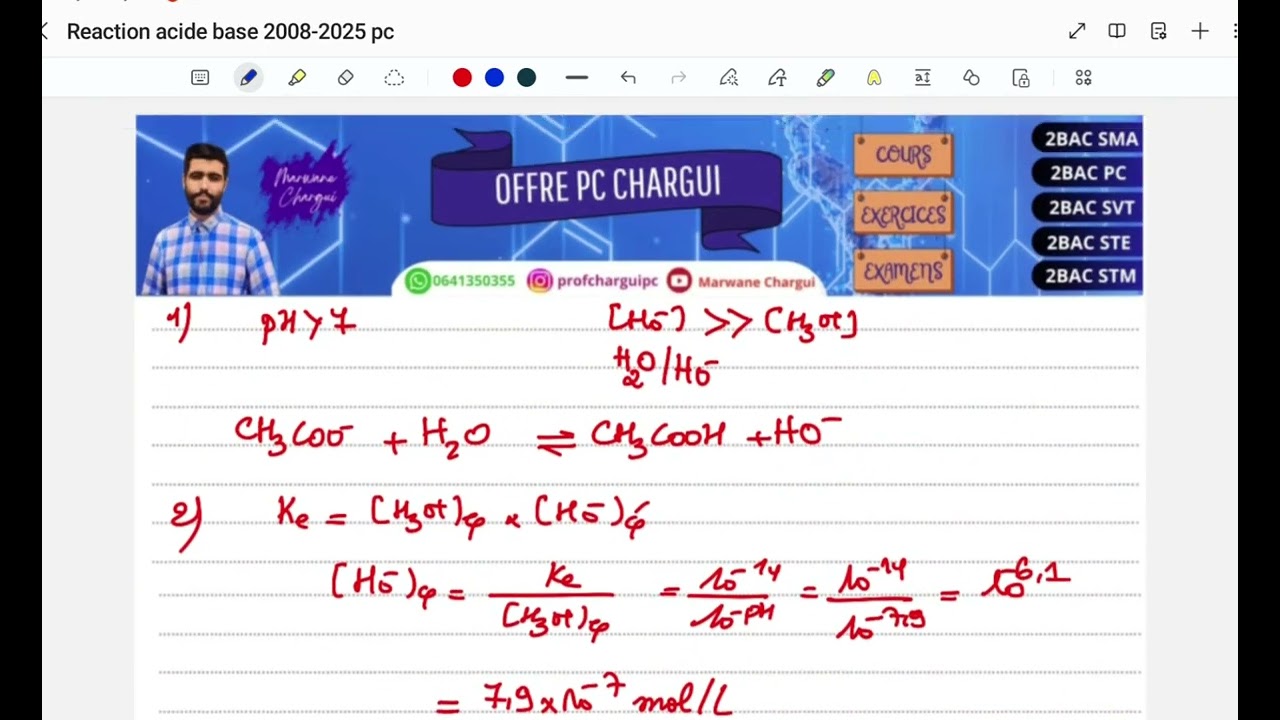 Reaction acide base 2008-2025 pc
Marwane Chargui
OFFRE PC CHARGUI
COURS
EXERCICES
EXAMENS
2BAC SMA
2BAC PC
2BAC SVT
2BAC STE
2BAC STM
0641350355 profcharguipc Marwane Chargui
1) pH > 7 [HO⁻] >> [H₃O⁺]
H₂O/HO⁻
CH₃COO⁻ + H₂O ⇌ CH₃COOH + HO⁻
2) Ke = [H₃O⁺]éq × [HO⁻]éq
[HO⁻]éq = Ke / [H₃O⁺]éq = 10⁻¹⁴ / 10⁻ᵖᴴ = 10⁻¹⁴ / 10⁻⁷,⁹ = 10⁻⁶,¹
= 7,9 × 10⁻⁷ mol/L